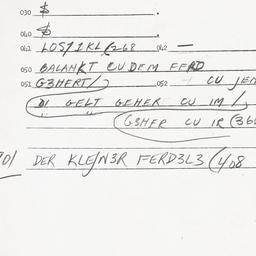 030 $
040 $
041 LOST/IKL/(268 042 —
050 BALANKT CU DEM FERD
051 G3HERT/) 052 CU JEN
DI GELT GEHER CU IM/
" " G3HER CU IR (366
DER KLE/N3R FERD3L3 (408